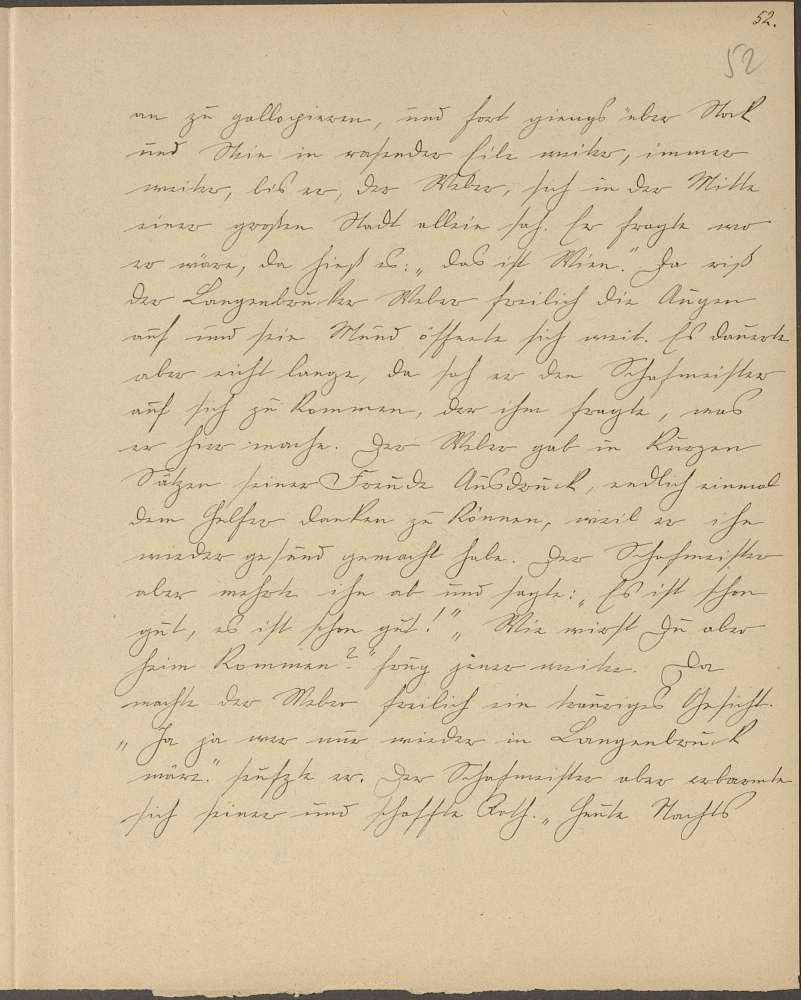 52.
52
an zu gallopieren, und fort giengs über Stock
und Stein in rasender Eile weiter, immer
weiter, bis er, der Weber, sich in der Mitte
einer großen Stadt allein sah. Er fragte wo
er wäre, da hieß es: „das ist Wien." Da riß
der Langenbrucker Weber freilich die Augen
auf und sein Mund öffnete sich weit. Es dauerte
aber nicht lange, da sah er den Schafmeister
auf sich zu kommen, der ihn fragte, was
er hier mache. Der Weber gab in kurzen
Sätzen seiner Freude Ausdruck, endlich einmal
dem Helfer danken zu können, weil er ihn
wieder gesund gemacht habe. Der Schafmeister
aber wehrte ihn ab und sagte: „Es ist schon
gut, es ist schon gut!" „Wie wirst Du aber
heim kommen?" frug jener weiter. Da
machte der Weber freilich ein trauriges Gesicht.
„Ja ja wer nur wieder in Langenbruck
wäre." seufzte er. Der Schafmeister aber erbarmte
sich seiner und schaffte Rath. „Heute Nachts